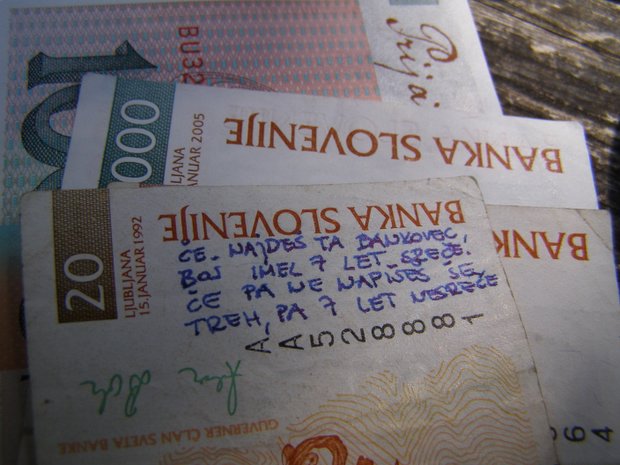 100
BU32
Prija
000
LJUBLJANA
JANUAR 2005
BANKA SLOVENIJE
20
LJUBLJANA
15. JANUAR 1992
BANKA SLOVENIJE
ČE NAJDEŠ TA BANKOVEC,
BOŠ IMEL 7 LET SREČE.
ČE PA NE NAPIŠEŠ ŠE
TREH, PA 7 LET NESREČE
AA528881
GUVERNER ČLAN SVETA BANKE
BANKA SLOVENIJE
64